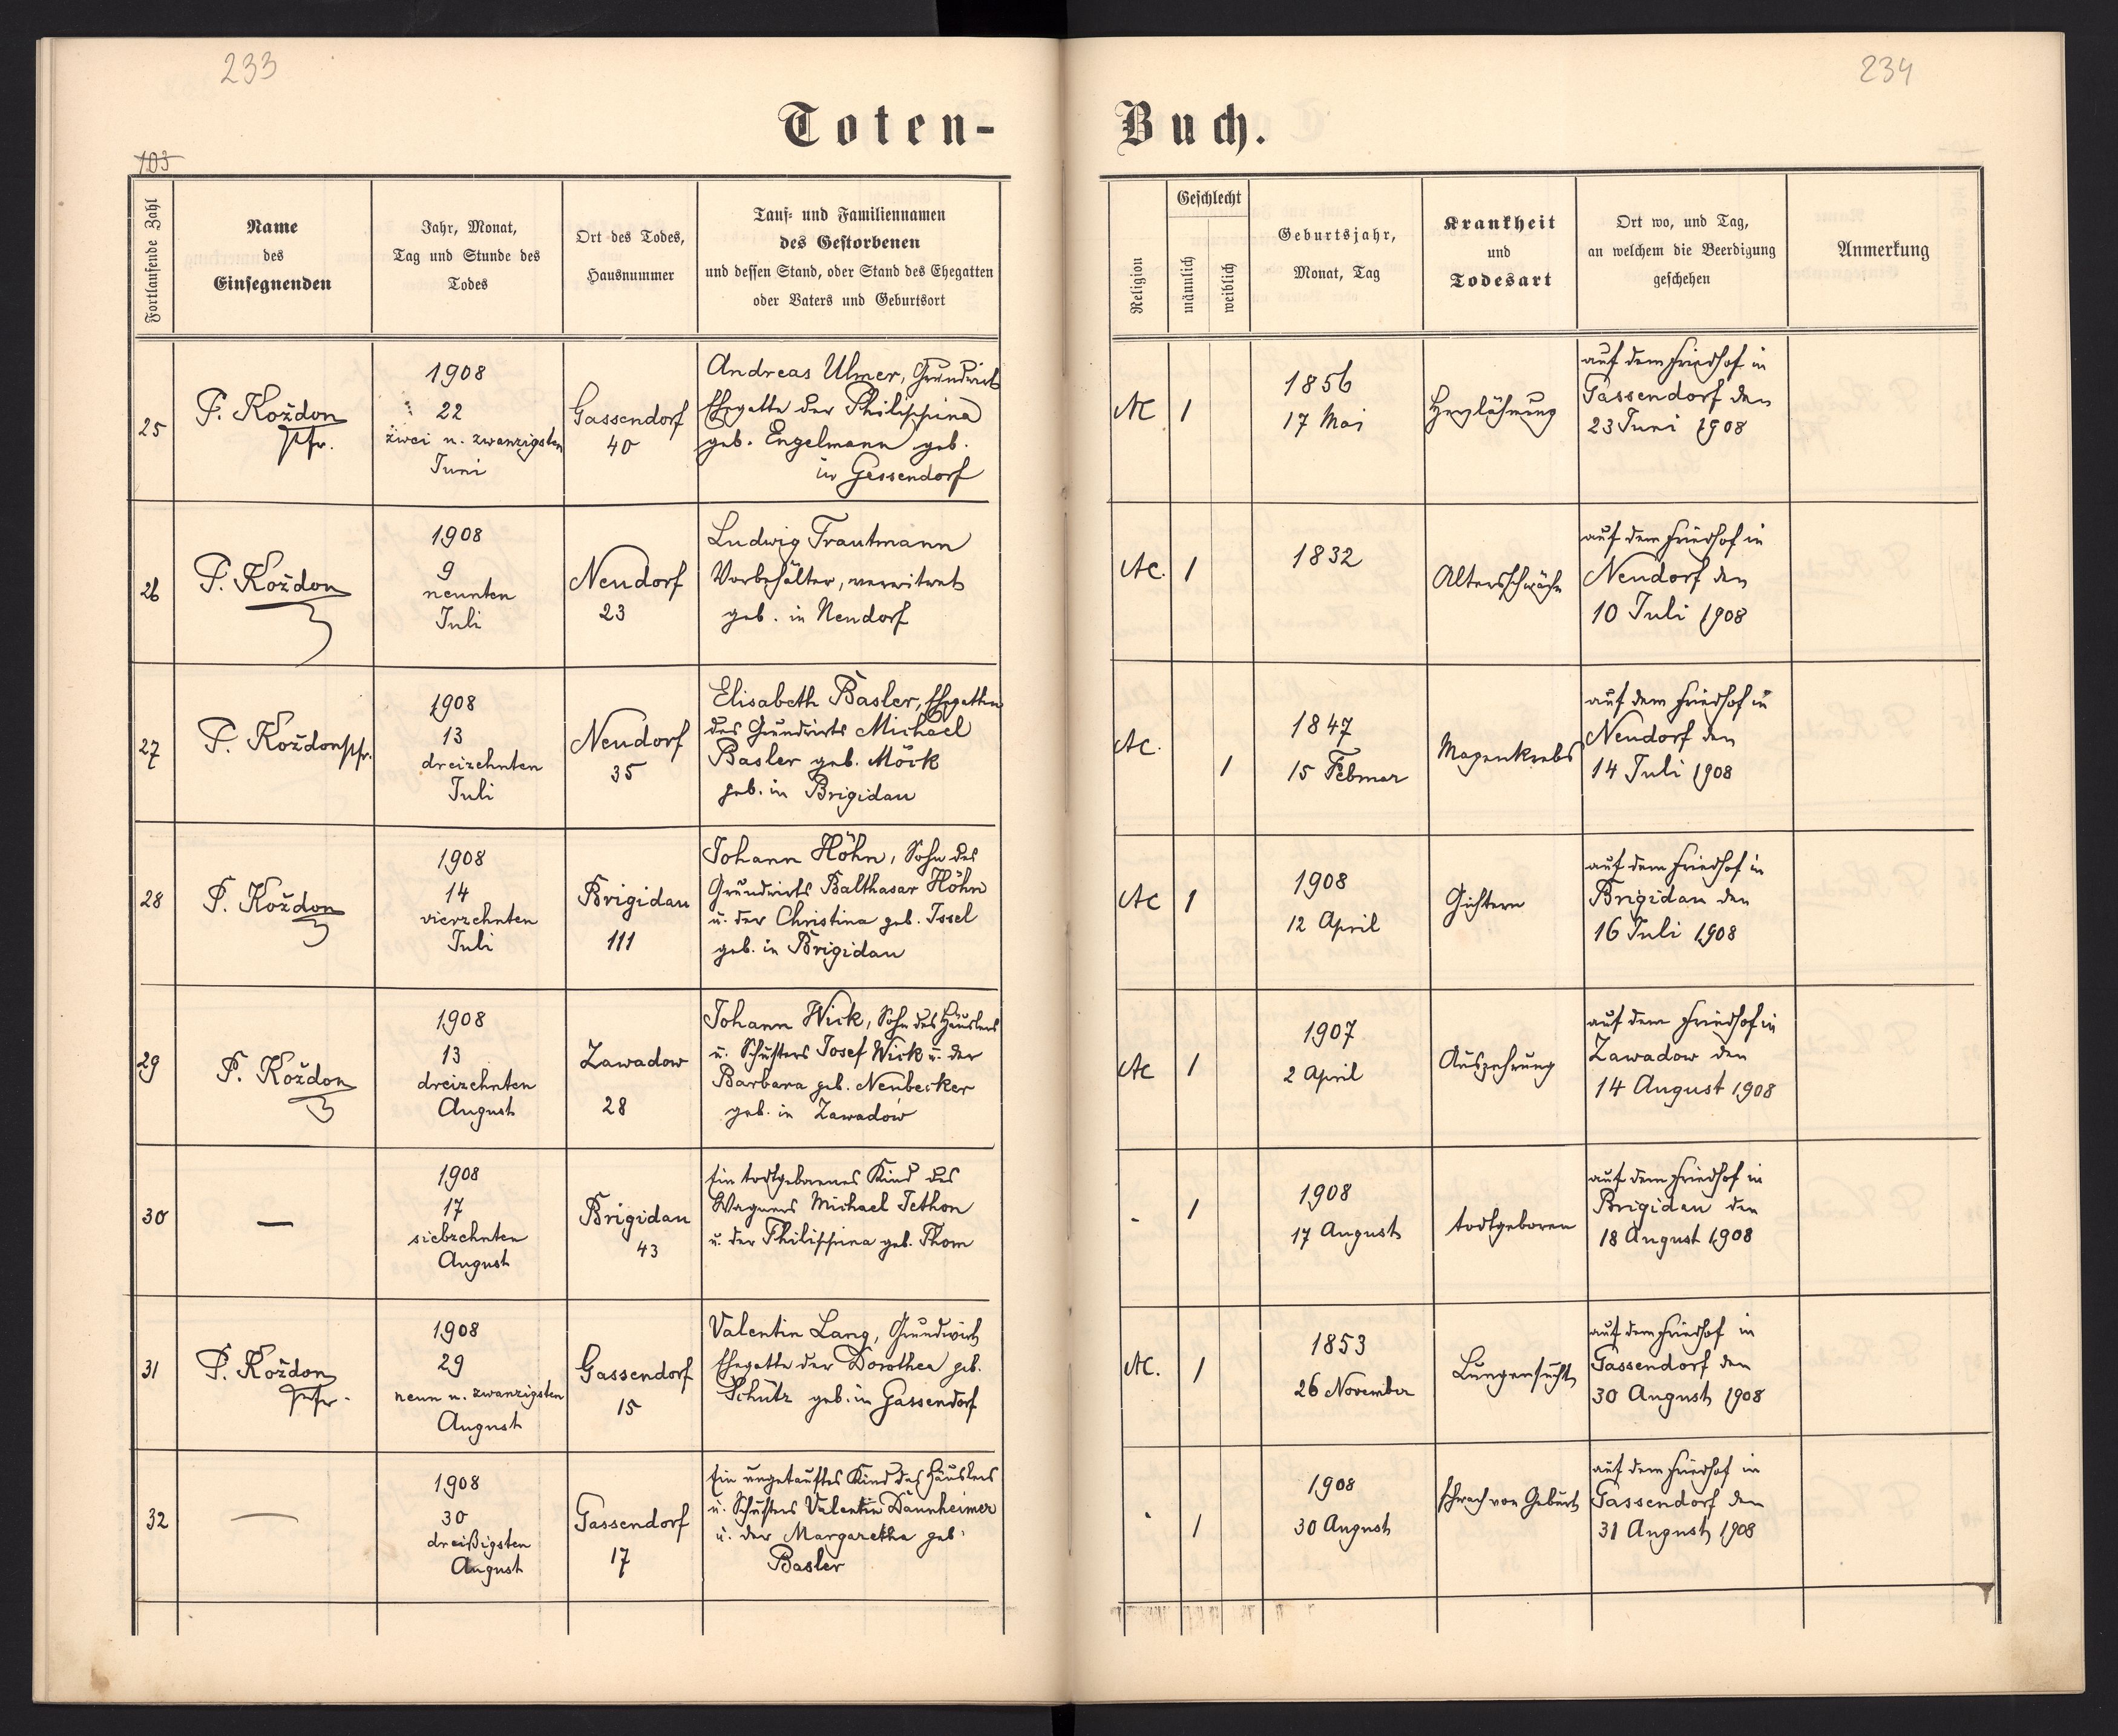 233
234
Toten-
Buch.
103
Fortlaufende Zahl
Name
des
Einsegnenden
Jahr, Monat,
Tag und Stunde des
Todes
Ort des Todes,
Hausnummer
Tauf- und Familiennamen
des Gestorbenen
und dessen Stand, oder Stand des Ehegatten
oder Vaters und Geburtsort
Religion
Geschlecht
männlich
weiblich
Geburtsjahr,
Monat, Tag
Krankheit
und
Todesart
Ort wo, und Tag,
an welchem die Beerdigung
geschehen
Anmerkung
25
P. Koždon
Pfr.
1908
22
zwei u. zwanzigsten
Juni
Gassendorf
40
Andreas Ulmer, Grundwirt
Ehegatte der Philippina
geb. Engelmann geb.
in Gessendorf
AC
1
1856
17 Mai
Herzlähmung
auf dem Friedhof in
Gassendorf den
23 Juni 1908
26
P. Koždon
1908
9
neunten
Juli
Neudorf
23
Ludwig Trautmann
Vorbehälter, verwitwet
geb. in Neudorf
AC.
1
1832
Altersschwäche
auf dem Friedhof in
Neudorf den
10 Juli 1908
27
P. Koždon Pfr.
1908
13
dreizehnten
Juli
Neudorf
35
Elisabeth Basler, Ehegattin
des Grundwirts Michael
Basler geb. Mörk
geb. in Brigidau
AC.
1
1847
15 Februar
Magenkrebs
auf dem Friedhof in
Neudorf den
14 Juli 1908
28
P. Koždon
1908
14
vierzehnten
Juli
Brigidau
111
Johann Höhn, Sohn des
Grundwirts Balthasar Höhn
u. der Christina geb. Issel
geb. in Brigidau
AC
1
1908
12 April
Gichtern
auf dem Friedhof in
Brigidau den
16 Juli 1908
29
P. Koždon
1908
13
dreizehnten
August
Zawadow
28
Johann Wick, Sohn des Häuslers
u. Schusters Josef Wick u. der
Barbara geb. Neubecker
geb. in Zawadów
AC
1
1907
2 April
Auszehrung
auf dem Friedhof in
Zawadow den
14 August 1908
30
—
1908
17
siebzehnten
August
Brigidau
43
Ein todtgeborenes Kind des
Wagners Michael Jethon
u. der Philippina geb. Thom
-
1
1908
17 August
todtgeboren
auf dem Friedhof in
Brigidau den
18 August 1908
31
P. Koždon
Pfr.
1908
29
neun u. zwanzigsten
August
Gassendorf
15
Valentin Lang, Grundwirt
Ehegatte der Dorothea geb.
Schütz geb. in Gassendorf
AC.
1
1853
26 November
Lungensucht
auf dem Friedhof in
Gassendorf den
30 August 1908
32
—
1908
30
dreißigsten
August
Gassendorf
17
Ein ungetauftes Kind des Häuslers
u. Schusters Valentin Dannheimer
u. der Margaretha geb.
Basler
-
1
1908
30 August
schwach von Geburt
auf dem Friedhof in
Gassendorf den
31 August 1908